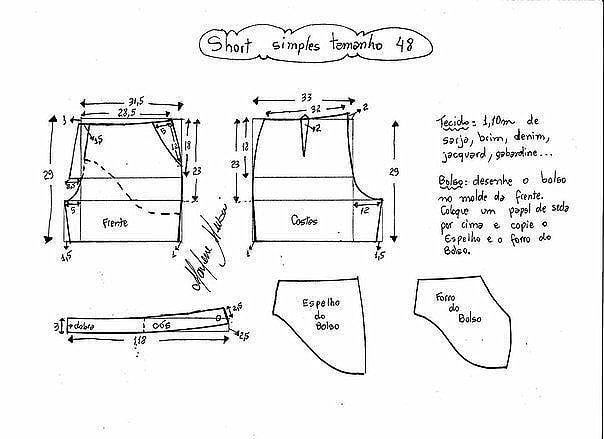 Short simples tamanho 48
31,5
28,5
1
1,5
5
12
18
23
29
5
Frente
1,5
1
33
32
2
2
18
23
29
12
Costas
1
1,5
Tecido: 1,10m de
sarja, brim, denim,
jacquard, gabardine...
Bolso: desenhe o bolso
no molde da frente.
Coloque um papel de seda
por cima e copie o
Espelho e o forro do
Bolso.
Marlene Mukai
3
dobra
cós
2,5
2,5
118
Espelho
do
Bolso
Forro
do
Bolso